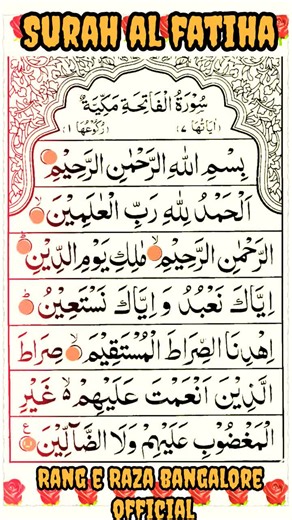 SURAH AL FATIHA
سُوْرَةُ الْفَاتِحَةِ مَكِّيَّةٌ
اٰيَاتُهَا ٧ رُكُوْعُهَا ١
بِسْمِ اللّٰهِ الرَّحْمٰنِ الرَّحِيْمِ
اَلْحَمْدُ لِلّٰهِ رَبِّ الْعٰلَمِيْنَ ۙ
الرَّحْمٰنِ الرَّحِيْمِ ۙ مٰلِكِ يَوْمِ الدِّيْنِ ؕ
اِيَّاكَ نَعْبُدُ وَ اِيَّاكَ نَسْتَعِيْنُ ؕ
اِهْدِنَا الصِّرَاطَ الْمُسْتَقِيْمَ ۙ صِرَاطَ
الَّذِيْنَ اَنْعَمْتَ عَلَيْهِمْ ۙ غَيْرِ
الْمَغْضُوْبِ عَلَيْهِمْ وَلَا الضَّآلِّيْنَ
RANG E RAZA BANGALORE
OFFICIAL